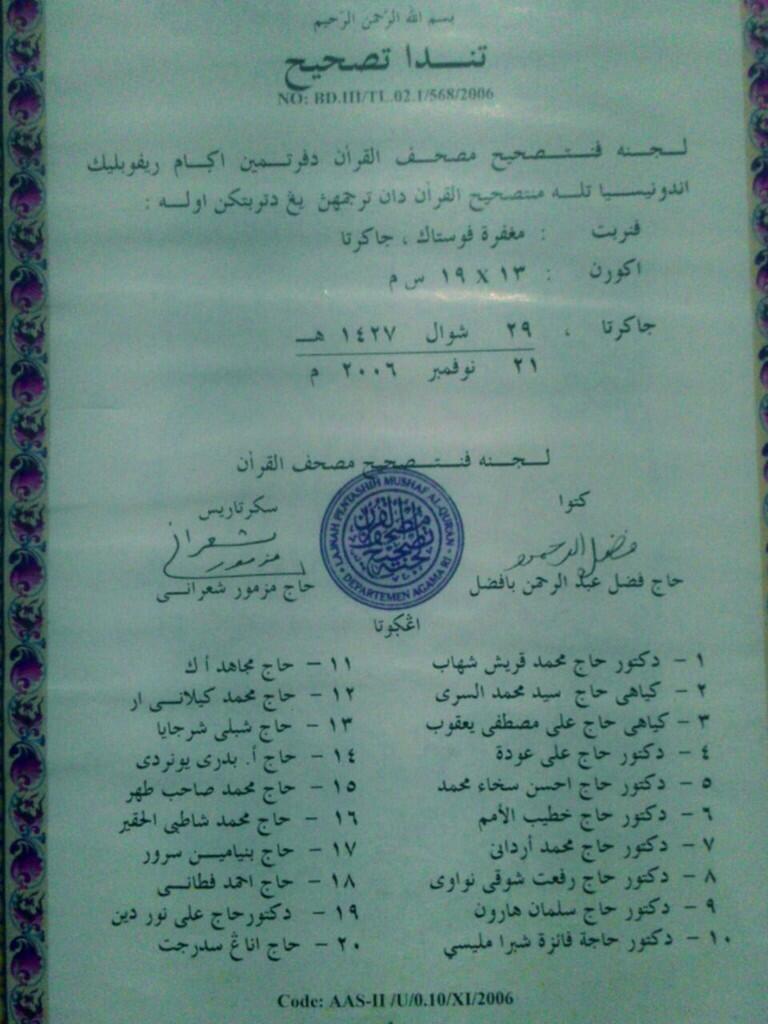 بسم الله الرّحمن الرّحيم
تندا تصحيح
NO: BD.III/TL.02.1/568/2006
لجنه فنتصحيح مصحف القرأن دفرتمين اكام ريفوبليك
اندونيسيا تله منتصحيح القرأن دان ترجمهن يڠ دتربتكن اوله :
فنربت : مغفرة فوستاك ، جاكرتا
اكورن : ١٣ X ١٩ س م
جاكرتا ، ٢٩ شوال ١٤٢٧ هـ
٢١ نوفمبر ٢٠٠٦ م
لجنه فنتصحيح مصحف القرأن
كتوا
سكرتاريس
LAJNAH PENTASHIH MUSHAF AL-QURAN
DEPARTEMEN AGAMA RI
حاج فضل عبد الرحمن بافضل
حاج مزمور شعرانى
اڠكوتا
١ – دكتور حاج محمد قريش شهاب
٢ – كياهى حاج سيد محمد السرى
٣ – كياهى حاج على مصطفى يعقوب
٤ – دكتور حاج على عودة
٥ – دكتور حاج احسن سخاء محمد
٦ – دكتور حاج خطيب الأمم
٧ – دكتور حاج محمد أردانى
٨ – دكتور حاج رفعت شوقى نواوى
٩ – دكتور حاج سلمان هارون
١٠ – دكتور حاجة فائزة شبرا مليسي
١١ – حاج مجاهد أ ك
١٢ – حاج محمد كيلانى ار
١٣ – حاج شبلى شرجايا
١٤ – حاج أ. بدرى يونردى
١٥ – حاج محمد صاحب طهر
١٦ – حاج محمد شاطبي الحقير
١٧ – حاج بنيامين سرور
١٨ – حاج احمد فطانى
١٩ – دكتورحاج على نور دين
٢٠ – حاج اناڠ سدرجت
Code: AAS-II /U/0.10/XI/2006